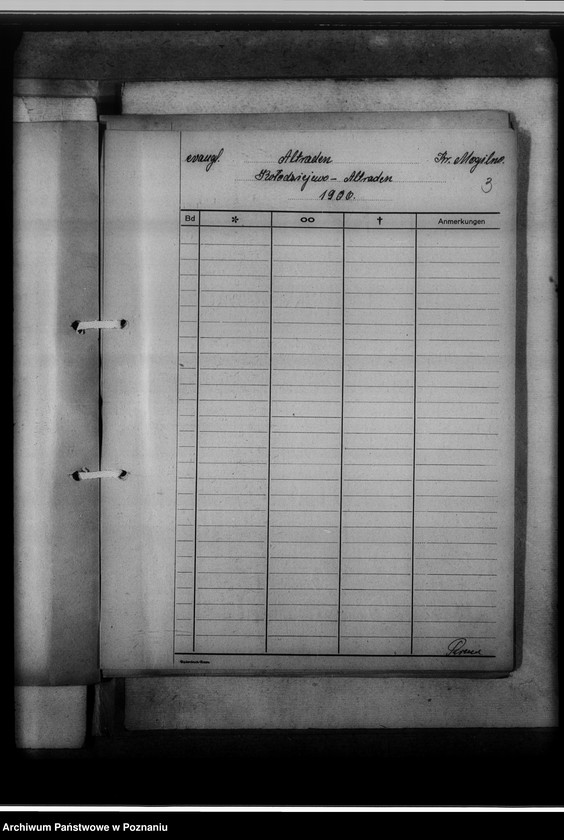 evangl. Altraden Kr. Mogilno.
Kołodziejewo - Altraden
3
1900.
Bd * oo † Anmerkungen
Archiwum Państwowe w Poznaniu